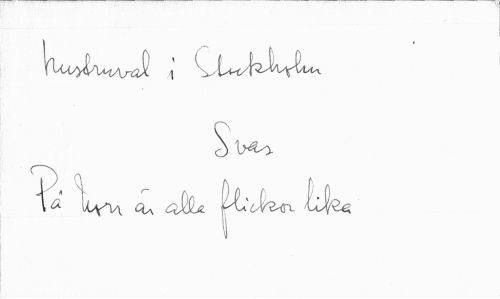 hustruval i Stockholm
Svar
På Norr är alla flickor lika